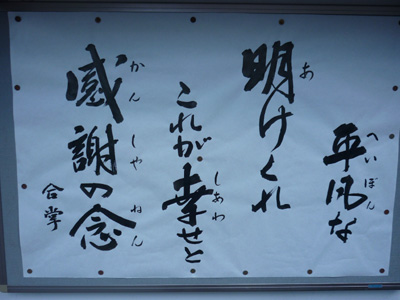 平凡な
へいぼん
明けくれ
あ
これが幸せと
しあわ
感謝の念
かんしゃねん
合掌